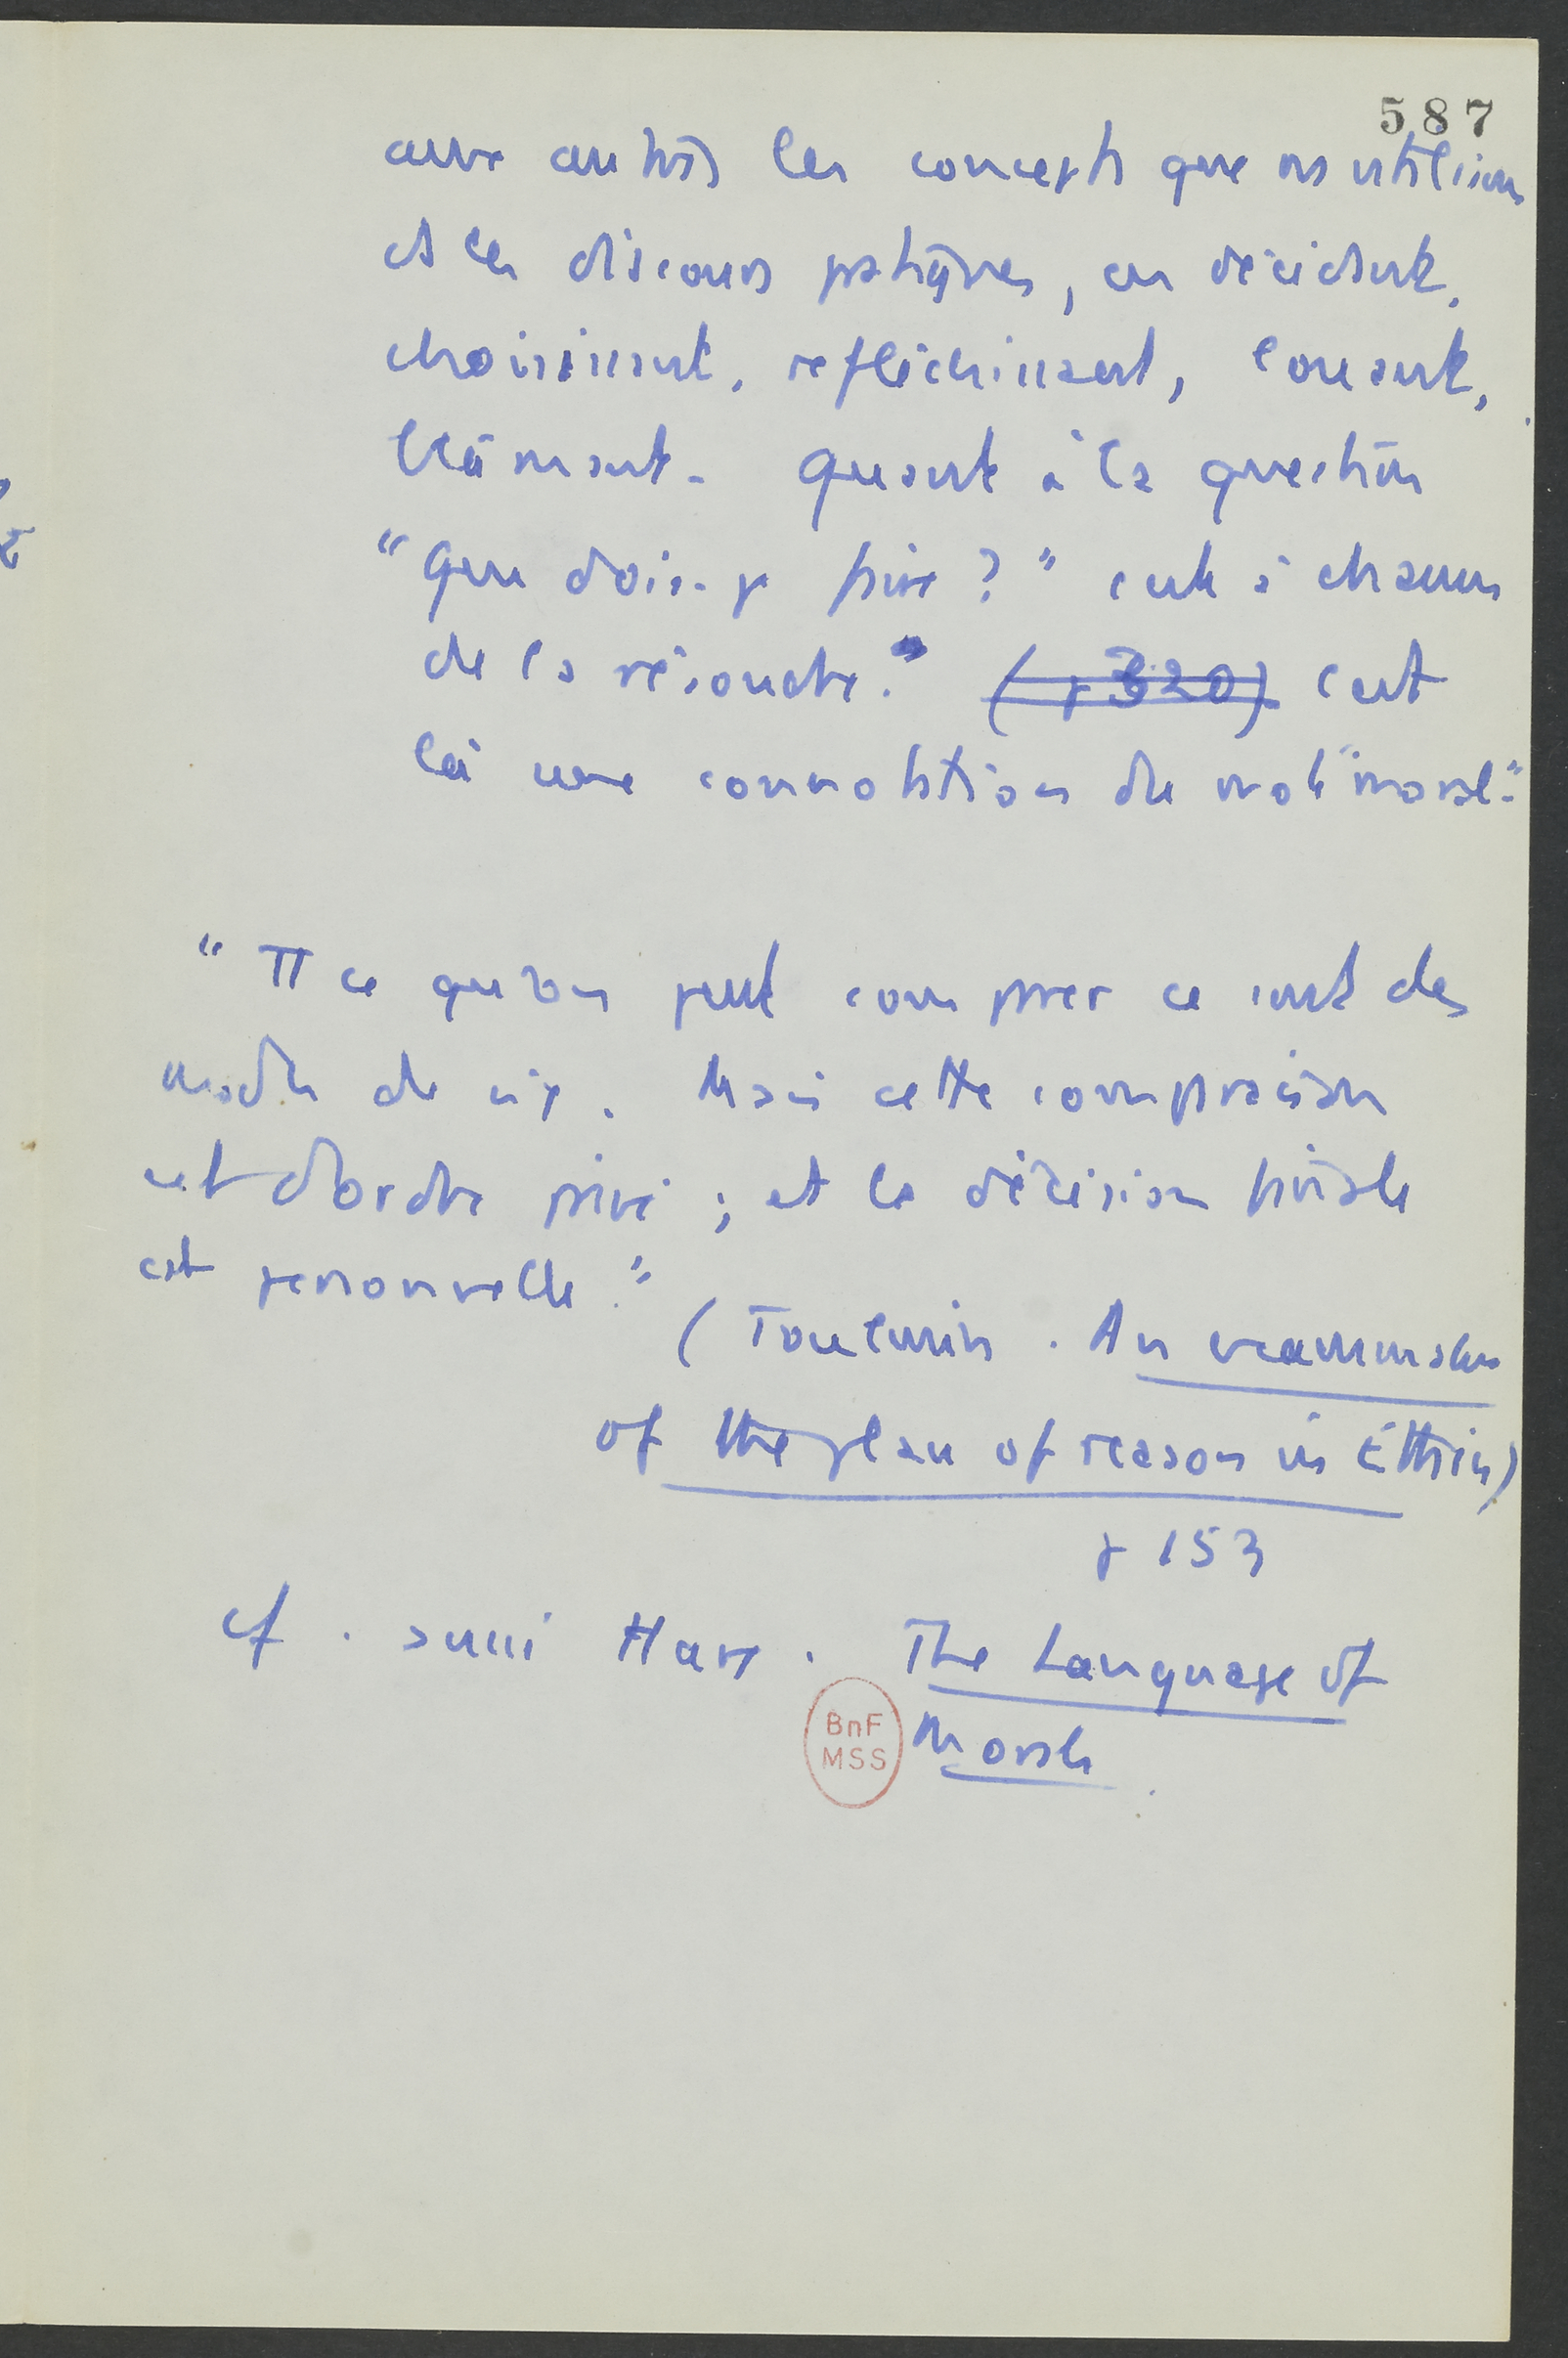 587
aux autres les concepts que ns utilisons
et les discours pratiques, en décidant,
choisissant, reflechissant, louant,
blâmant. Quant à la question
"Que dois-je faire ?" c'est à chacun
de la résoudre." (p 320) C'est
là une connotation du mot "moral".
"Tt ce que l'on peut comparer ce sont des
modes de vie. Mais cette comparaison
est d'ordre privé ; et la décision finale
est personnelle."
(Toulmin. An examination
of the place of reason in Ethics)
p 153
cf. aussi Hare. The Language of
Morals.
BnF
MSS